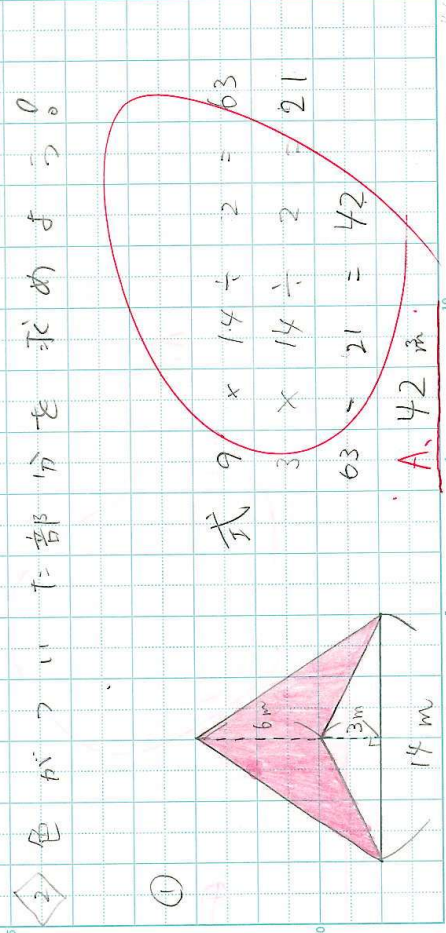 2 色がついた部分を求めよう。
①
6m
3m
14m
式 9×14÷2=63
3×14÷2=21
63-21=42
A、42㎡